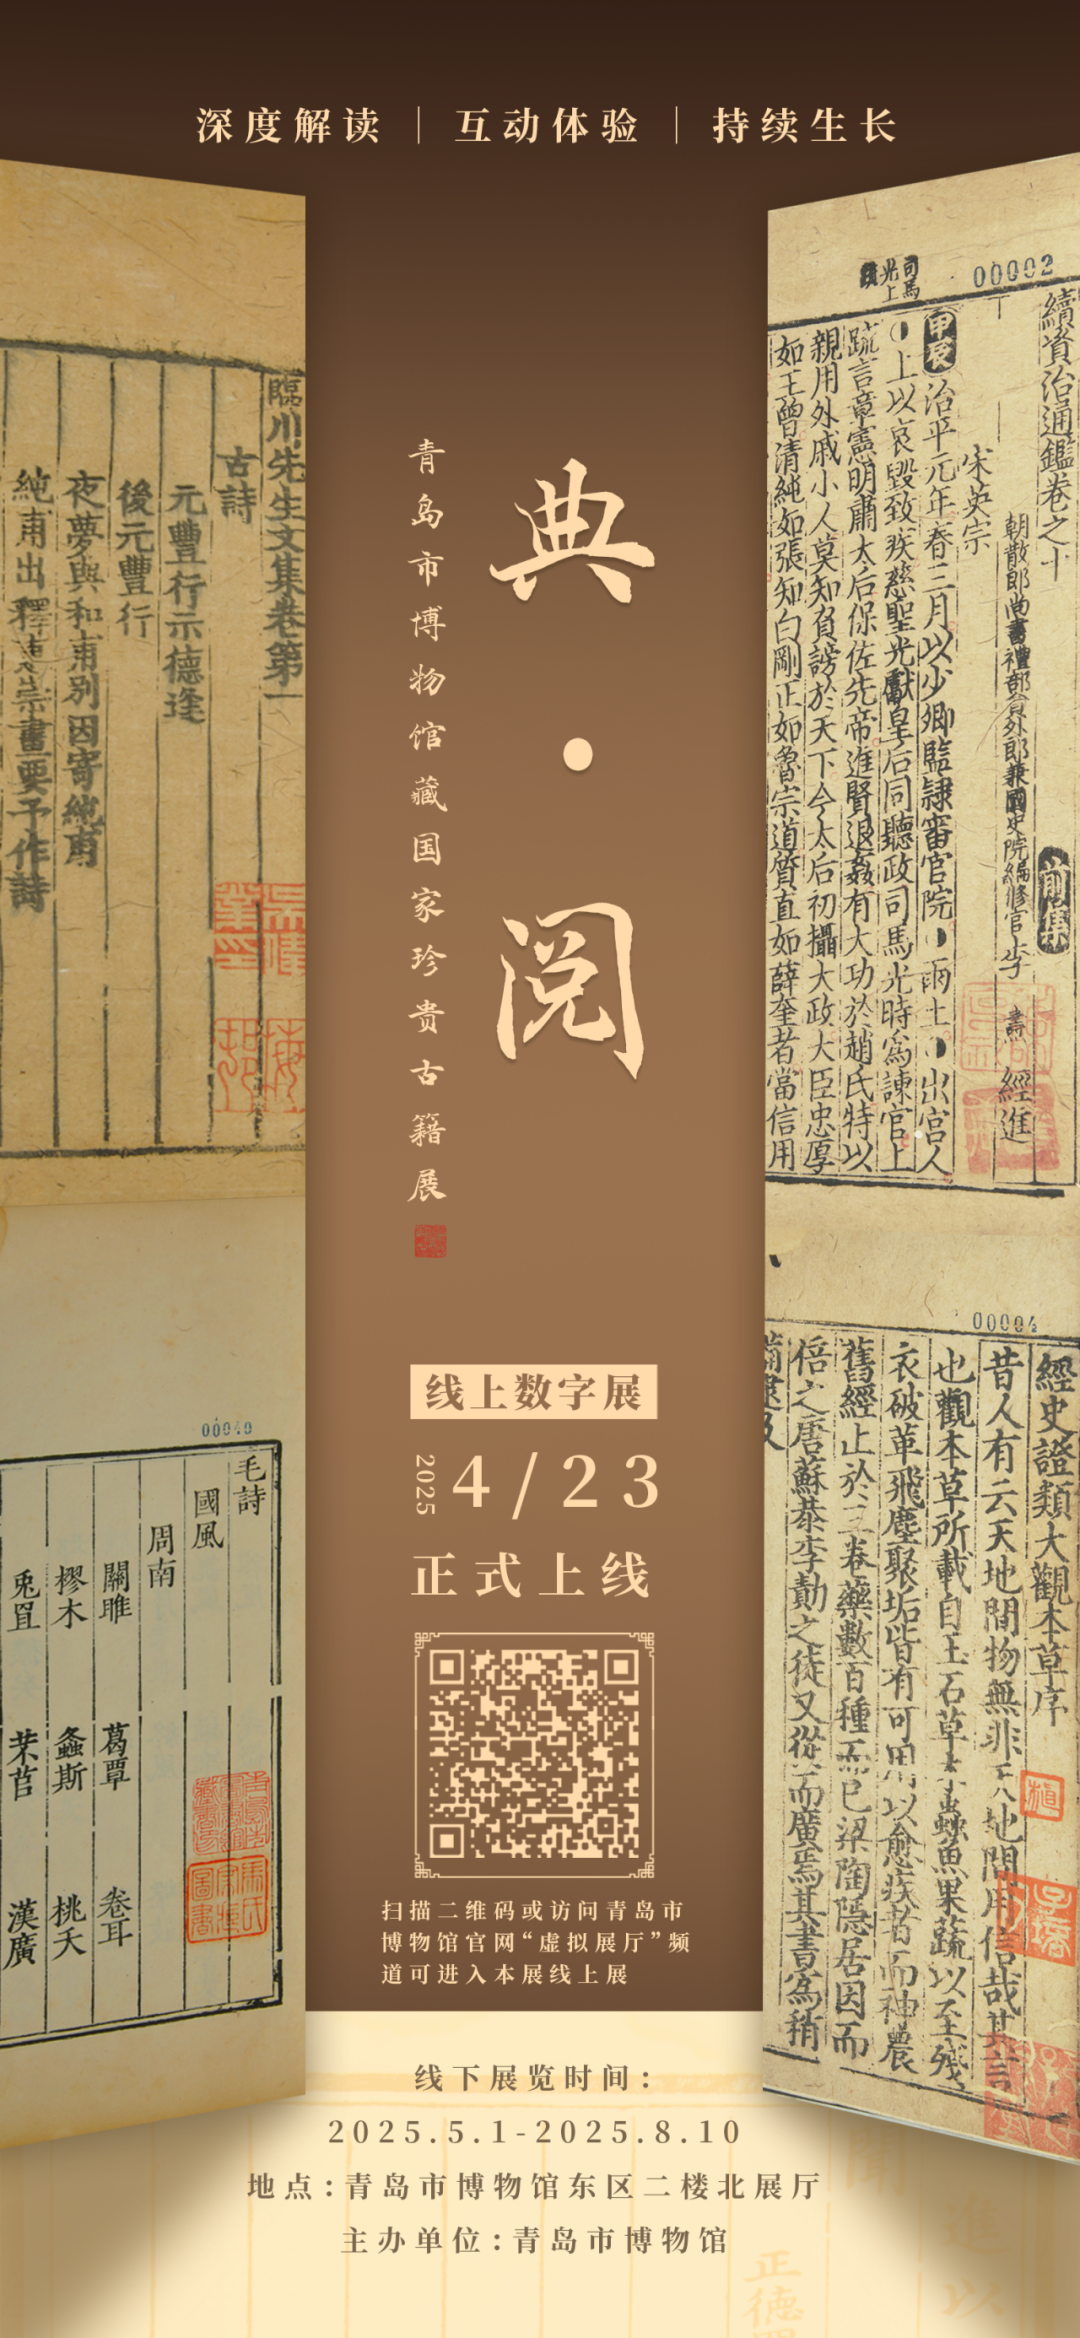 深度解读｜互动体验｜持续生长
典·阅
青岛市博物馆藏国家珍贵古籍展
线上数字展
2025
4/23
正式上线
扫描二维码或访问青岛市
博物馆官网“虚拟展厅”频
道可进入本展线上展
线下展览时间:
2025.5.1-2025.8.10
地点:青岛市博物馆东区二楼北展厅
主办单位:青岛市博物馆
臨川先生文集卷第一
古詩
元豐行示德逢
後元豐行
夜夢與和甫别因寄純甫
純甫出釋惠崇畫要予作詩
00040
毛詩
國風
周南
關雎 葛覃 卷耳
樛木 螽斯 桃夭
兎罝 芣苢 漢廣
司馬光上
00002
續資治通鑑卷之十
前集
朝散郎尚書禮部員外郎兼國史院編修官李燾經進
宋英宗
甲辰治平元年春三月以少卿監隷審官院雨土出宫人
上以哀毀致疾慈聖光獻皇后同聽政司馬光時爲諫官上
疏言章憲明肅太后保佐先帝進賢退姦有大功於趙氏特以
親用外戚小人莫知負謗於天下今太后初攝大政大臣忠厚
如王曾清純如張知白剛正如魯宗道質直如薛奎者當信用
00004
經史證類大觀本草序
昔人有云天地間物無非天地間用信哉其言
也觀本草所載自玉石草木蟲魚果蔬以至殘
衣破革飛塵聚垢皆有可用以愈疾者而神農
舊經止於三卷藥數百種而已梁陶隱居因而
倍之唐蘇恭李勣之徒又從而廣焉其書爲稍
正德
進以
聞